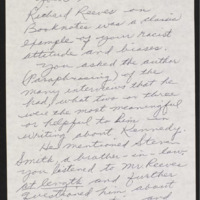 Richard Reeves on
Booknotes was a classic
example of your racist
attitude and biases.
You asked the author
(Paraphrasing) of the
many interviews that he
had, what two or three
were the most meaningful
or helpful to him in
writing about Kennedy.
He mentioned Steve
Smith, a brother-in-law
you listened to Mr Reeves
at length and further
questioned him about